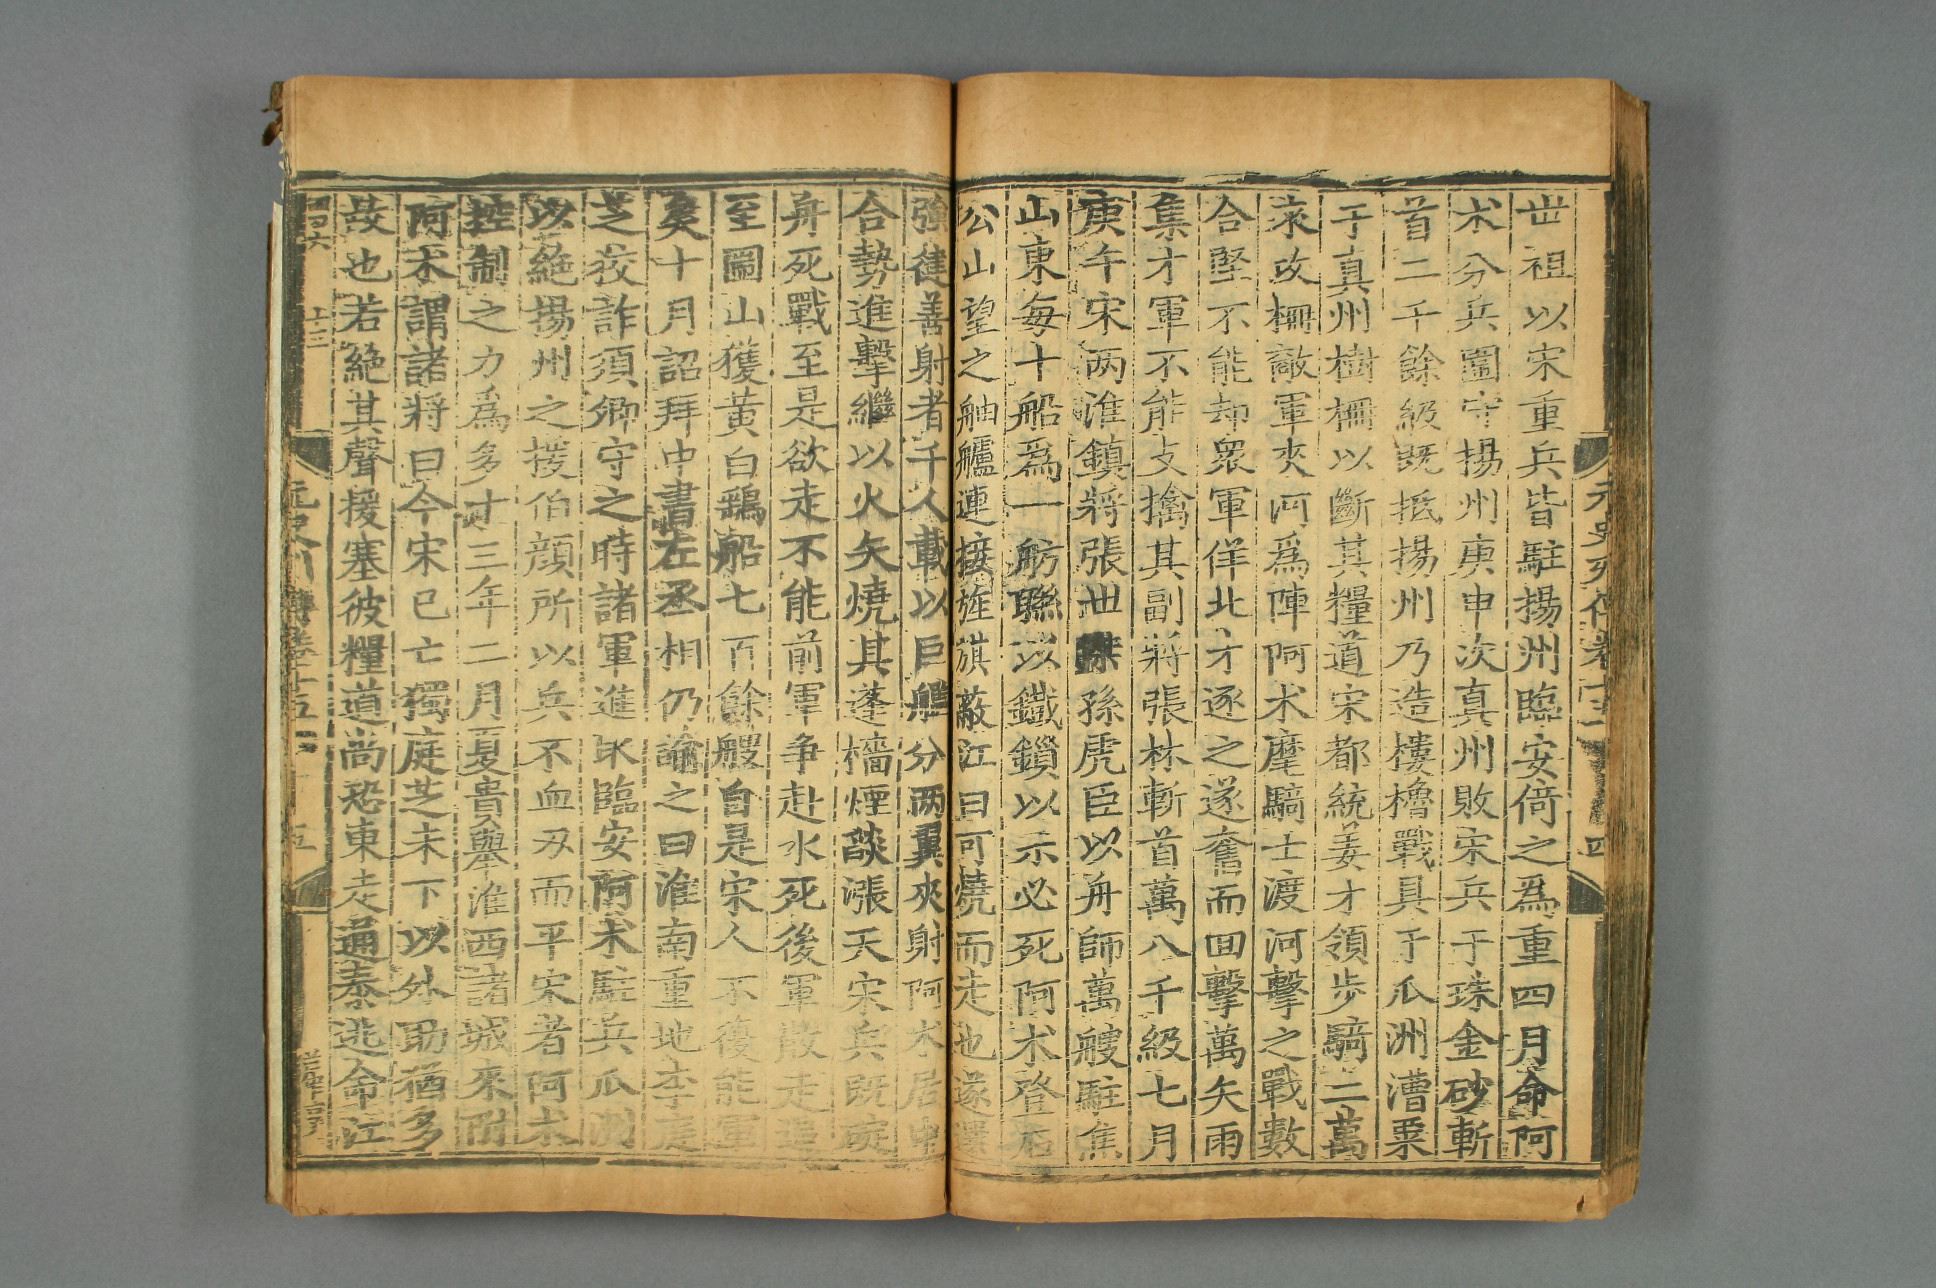 元史列傳卷十五 四
世祖以宋重兵皆駐揚州臨安倚之爲重四月命阿
术分兵圍守揚州庚申次真州敗宋兵于珠金砂斬
首二千餘級既抵揚州乃造樓櫓戰具于瓜洲漕粟
于真州樹柵以斷其糧道宋都統姜才領步騎二萬
來攻柵敵軍夾河爲陣阿术麾騎士渡河擊之戰數
合堅不能却衆軍佯北才逐之遂奮而回擊萬矢雨
集才軍不能支擒其副將張林斬首萬八千級七月
庚午宋两淮鎮將張世傑孫虎臣以舟師萬艘駐焦
山東每十船爲一舫聯以鐵鎖以示必死阿术登石
公山望之舳艫連接旌旗蔽江曰可燒而走也遂選
強徤善射者千人載以巨艦分两翼夾射阿术居中
合勢進擊繼以火矢燒其蓬檣煙燄漲天宋兵既碇
舟死戰至是欲走不能前軍争赴水死後軍散走追
至圌山獲黃白鷂船七百餘艘自是宋人不復能軍
矣十月詔拜中書左丞相仍諭之曰淮南重地李庭
芝狡詐須卿守之時諸軍進取臨安阿术駐兵瓜洲
以絕揚州之援伯顔所以兵不血刃而平宋者阿术
控制之力爲多才三年二月夏貴舉淮西諸城來附
阿术謂諸將曰今宋已亡獨庭芝未下以外助猶多
故也若絕其聲援塞彼糧道尚恐東走通泰逃命江
元史列傳卷十五 五